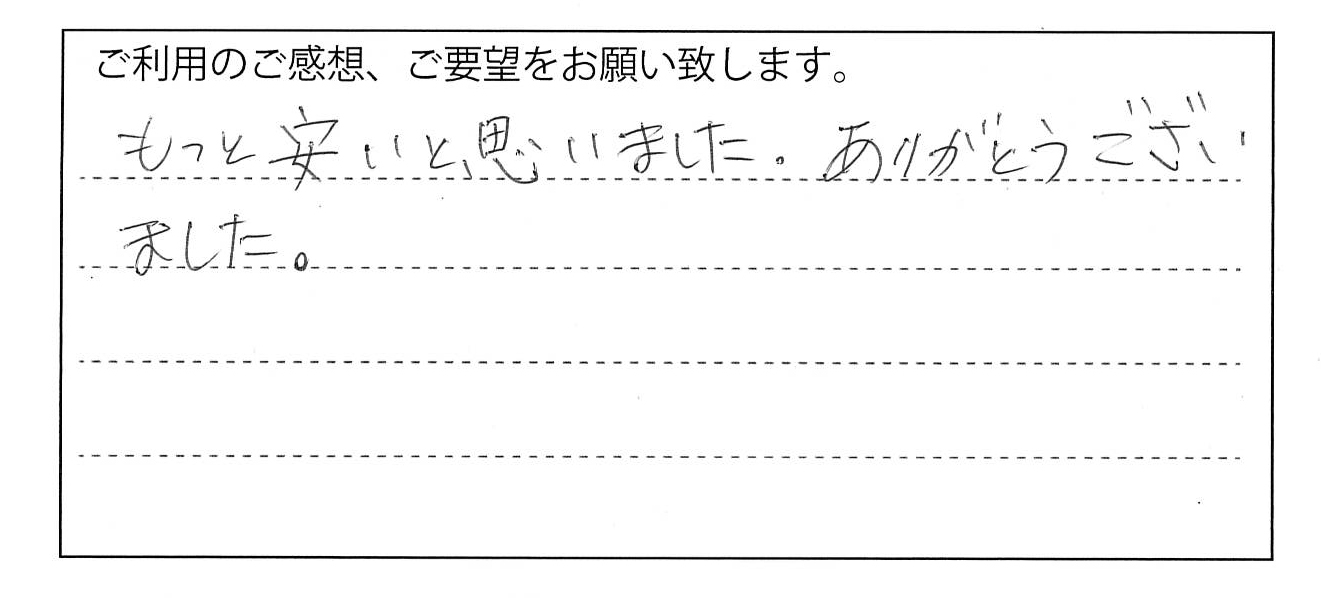 ご利用のご感想、ご要望をお願い致します。
もっと安いと思いました。ありがとうござい
ました。